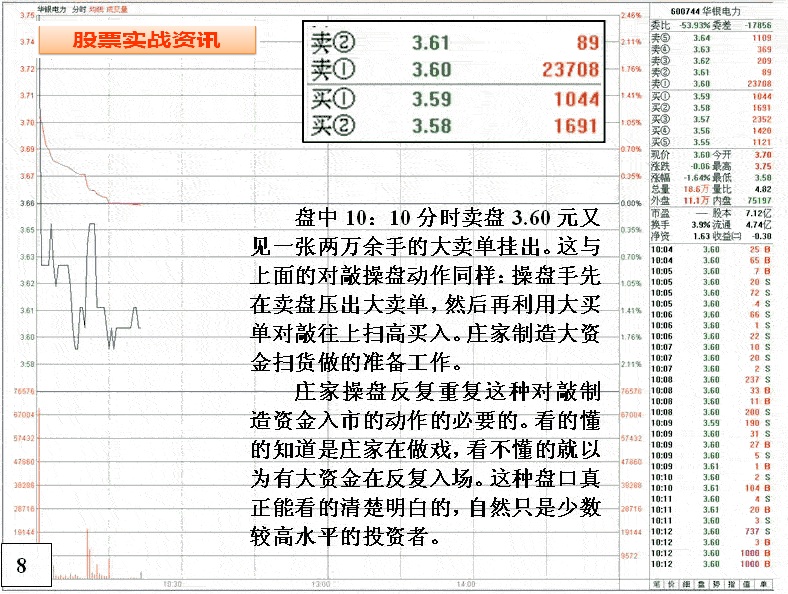 华银电力 分时 均线 成交量
股票实战资讯
3.75
3.73
3.72
3.71
3.70
3.69
3.67
3.66
3.65
3.63
3.62
3.61
3.60
3.58
76576
67004
57432
47860
38288
28716
19144
2.46%
2.11%
1.76%
1.41%
1.05%
0.70%
0.35%
0.00%
0.35%
0.70%
1.05%
1.41%
1.76%
2.11%
76576
67004
57432
47860
38288
28716
19144
9572
10:30
13:00
14:00
卖② 3.61 89
卖① 3.60 23708
买① 3.59 1044
买② 3.58 1691
盘中 10：10 分时卖盘 3.60 元又
见一张两万余手的大卖单挂出。这与
上面的对敲操盘动作同样：操盘手先
在卖盘压出大卖单，然后再利用大买
单对敲往上扫高买入。庄家制造大资
金扫货做的准备工作。
庄家操盘反复重复这种对敲制
造资金入市的动作的必要的。看的懂
的知道是庄家在做戏，看不懂的就以
为有大资金在反复入场。这种盘口真
正能看的清楚明白的，自然只是少数
较高水平的投资者。
8
600744 华银电力
委比 -53.93% 委差 -17856
卖⑤ 3.64 1109
卖④ 3.63 369
卖③ 3.62 209
卖② 3.61 89
卖① 3.60 23708
买① 3.59 1044
买② 3.58 1691
买③ 3.57 2352
买④ 3.56 1420
买⑤ 3.55 1121
现价 3.60 今开 3.70
涨跌 -0.06 最高 3.75
涨幅 -1.64% 最低 3.58
总量 18.6万 量比 4.82
外盘 11.1万 内盘 75197
市盈 — 股本 7.12亿
换手 3.9% 流通 4.74亿
净资 1.63 收益㈡ -0.30
10:04 3.60 25 B
10:04 3.60 65 B
10:05 3.60 7 B
10:05 3.60 20 S
10:05 3.60 72 S
10:05 3.60 4 S
10:06 3.60 66 S
10:06 3.60 1 S
10:06 3.60 22 S
10:07 3.60 10 S
10:07 3.60 20 S
10:07 3.60 2 S
10:08 3.60 237 S
10:08 3.60 33 B
10:08 3.60 11 B
10:08 3.60 200 S
10:09 3.59 190 S
10:09 3.60 31 S
10:09 3.60 27 B
10:09 3.60 5 S
10:09 3.61 1 B
10:10 3.60 2 S
10:10 3.61 104 B
10:11 3.60 4 S
10:11 3.61 20 B
10:11 3.60 3 S
10:12 3.60 737 S
10:12 3.60 3 B
10:12 3.60 1000 B
10:12 3.60 1000 B
笔 价 细 盘 势 指 值 单